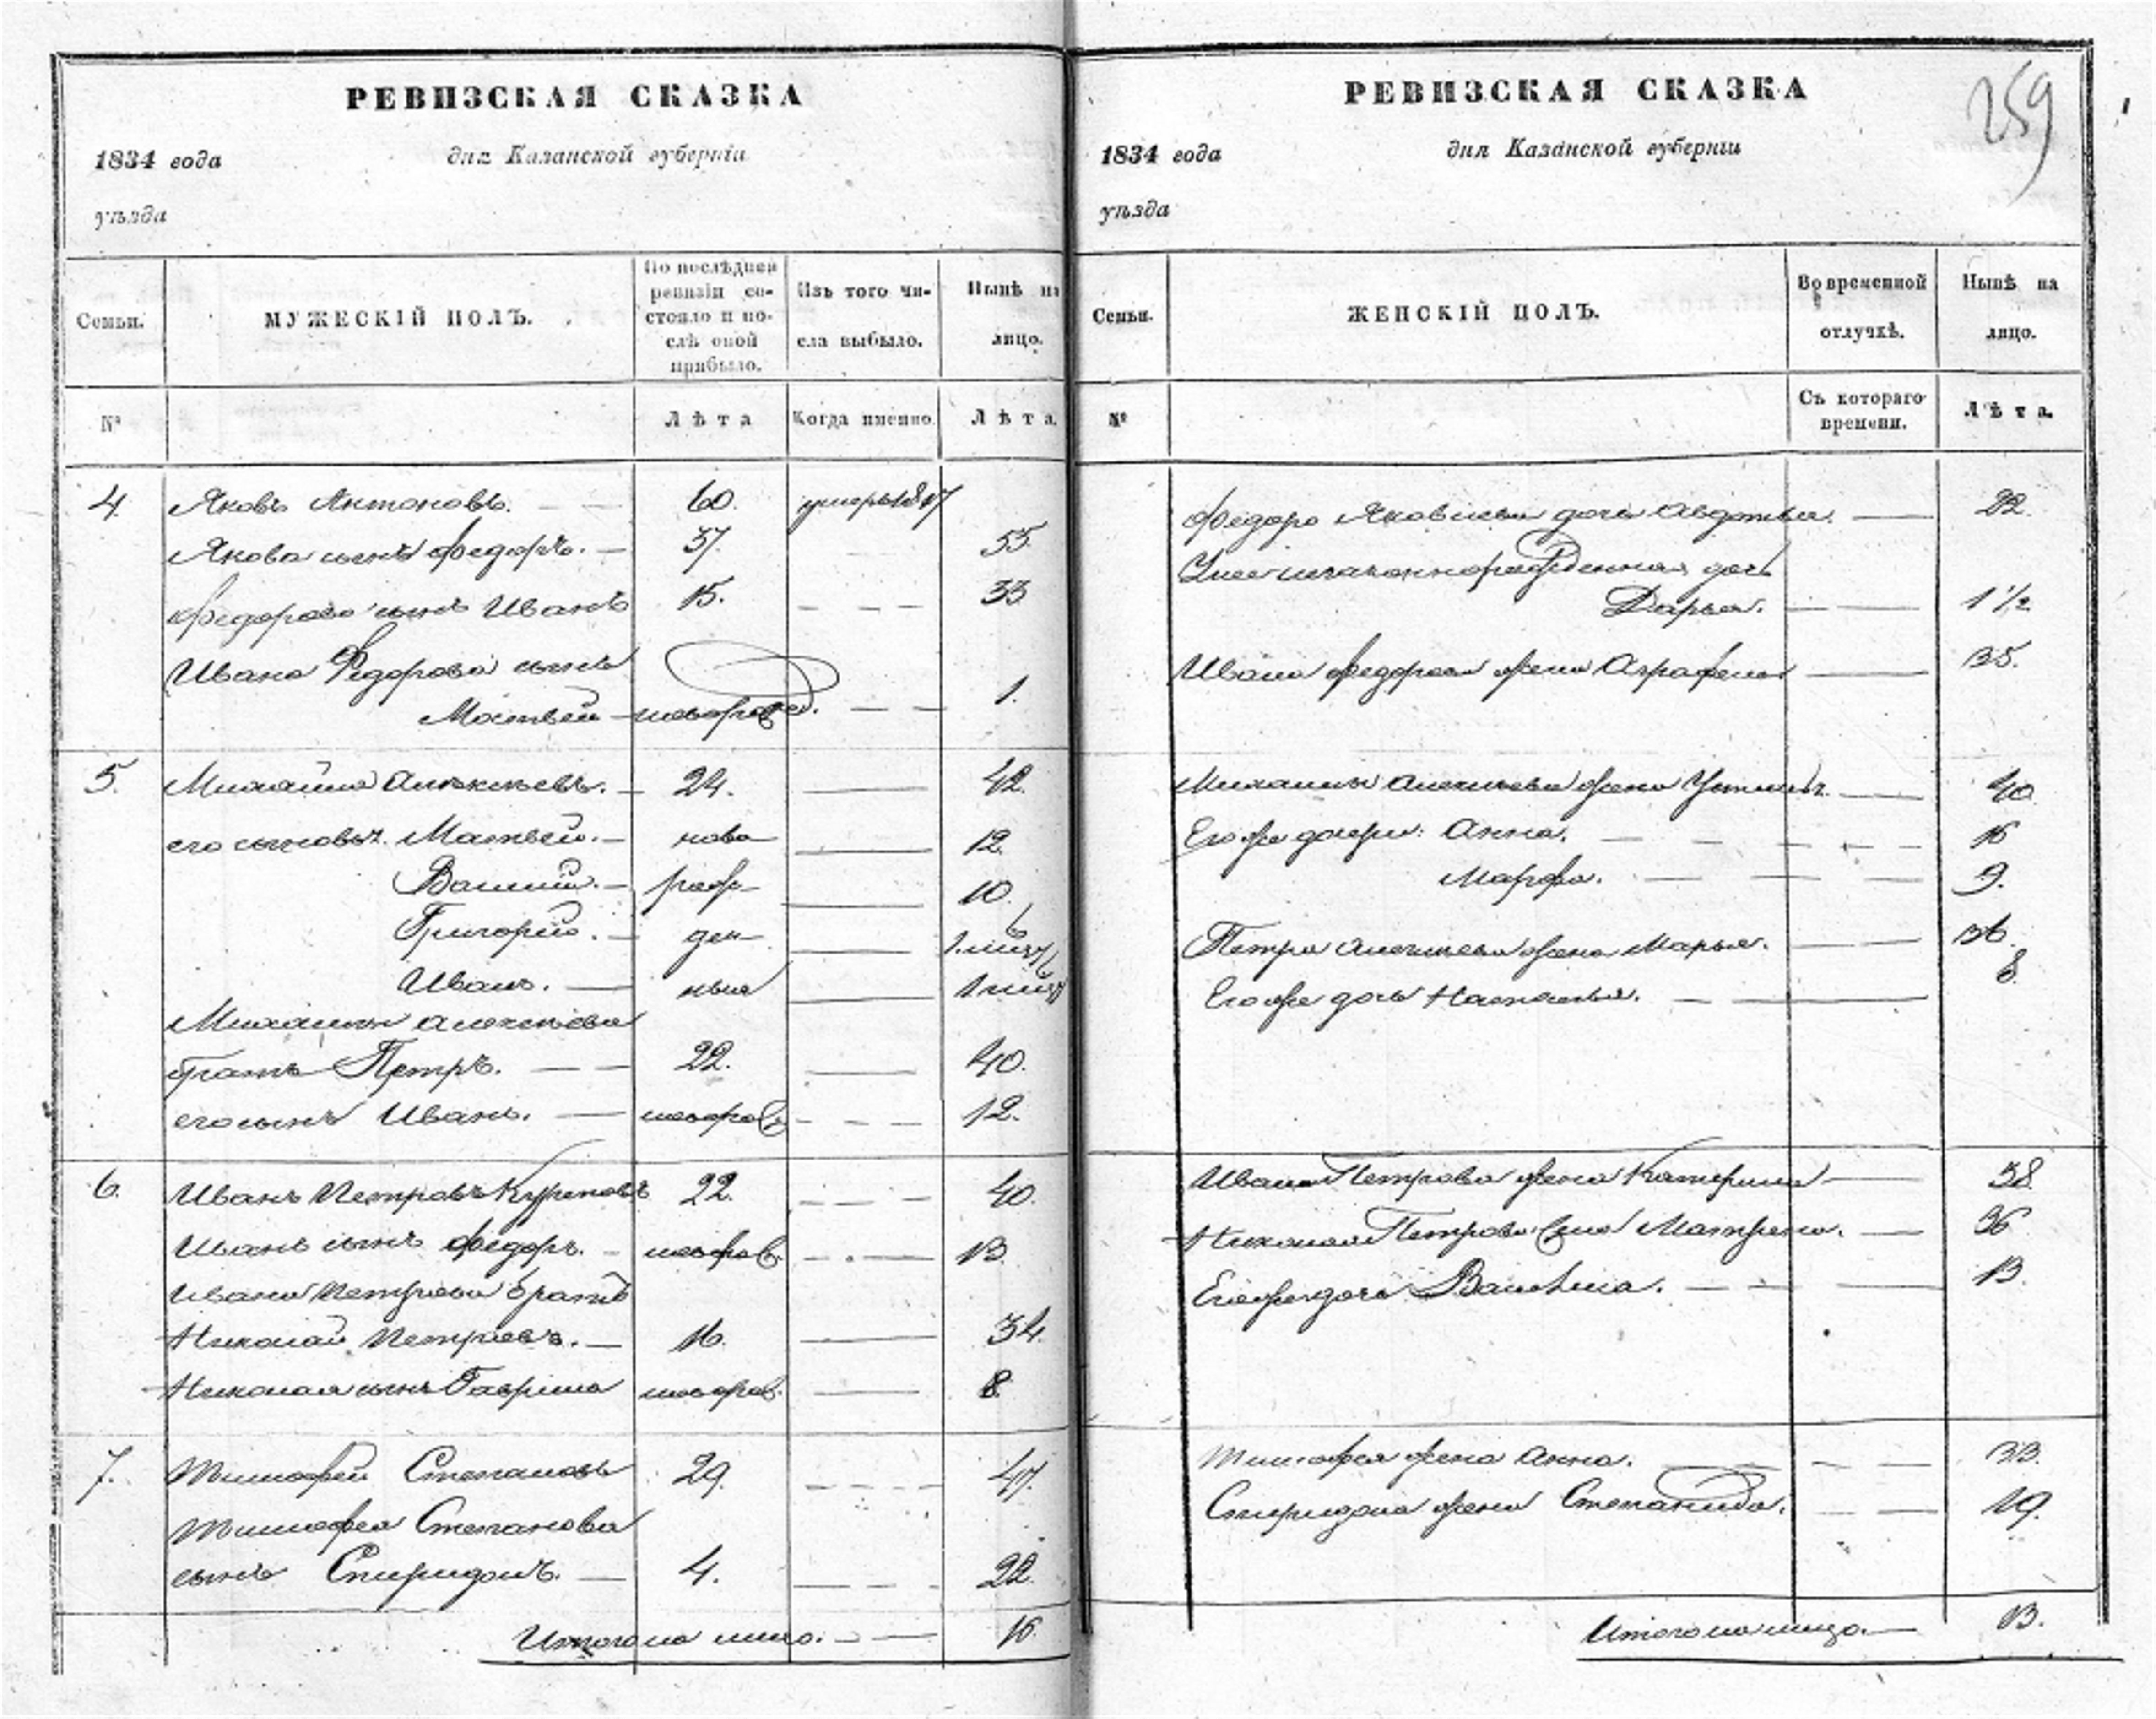 РЕВИЗСКАЯ СКАЗКА
1834 года
дня Казанской губерніи
уѣзда
Семьи.
МУЖЕСКІЙ ПОЛЪ.
По послѣдней ревизіи состояло и послѣ оной прибыло.
Изъ того числа выбыло.
Нынѣ на лицо.
№
Лѣта
Когда именно
Лѣта.
4. Яковъ Антоновъ. 60. умеръ 1817
Якова сынъ Федоръ. 37. 55.
Федорова сынъ Иванъ 15. 33
Ивана Федорова сынъ
Матвей новорожд. 1.
5. Михайла Алексѣевъ. 24. 42.
его сыновья. Матвей. ново 12.
Василій. рож 10.
Григорій. ден 6
Иванъ. ныя
Михайлы Алексѣева
братъ Петръ. 22. 40.
его сынъ Иванъ. новорож 12.
6. Иванъ Петровъ 22. 40.
Ивана сынъ Федоръ. новорож. 13
Ивана Петрова братъ
Николай Петровъ. 16. 34.
Николая сынъ Гаврила новорож. 8.
7. Тимофей Степановъ 29. 47.
Тимофея Степанова
сынъ Спиридонъ. 4. 22.
Итого на лицо. 16.
РЕВИЗСКАЯ СКАЗКА
259
1834 года
дня Казанской губерніи
уѣзда
Семьи.
ЖЕНСКІЙ ПОЛЪ.
Во временной отлучкѣ.
Нынѣ на лицо.
№
Съ котораго времени.
Лѣта.
Федора Яковлева дочь Авдотья. 22.
незаконнорожденная дочь
Дарья. 1 1/2
Ивана Федорова жена Аграфена 35.
Михайлы Алексѣева жена Устинья. 40
Его же дочери: Анна. 16
Марфа. 9.
Петра Алексѣева жена Марья. 36.
Его же дочь Настасья. 8.
Ивана Петрова жена Катерина 38.
Николая Петрова жена Матрена. 36
Его же дочь Василиса. 13.
Тимофея жена Анна. 33.
Спиридона жена Степанида. 19.
Итого на лицо. 13.